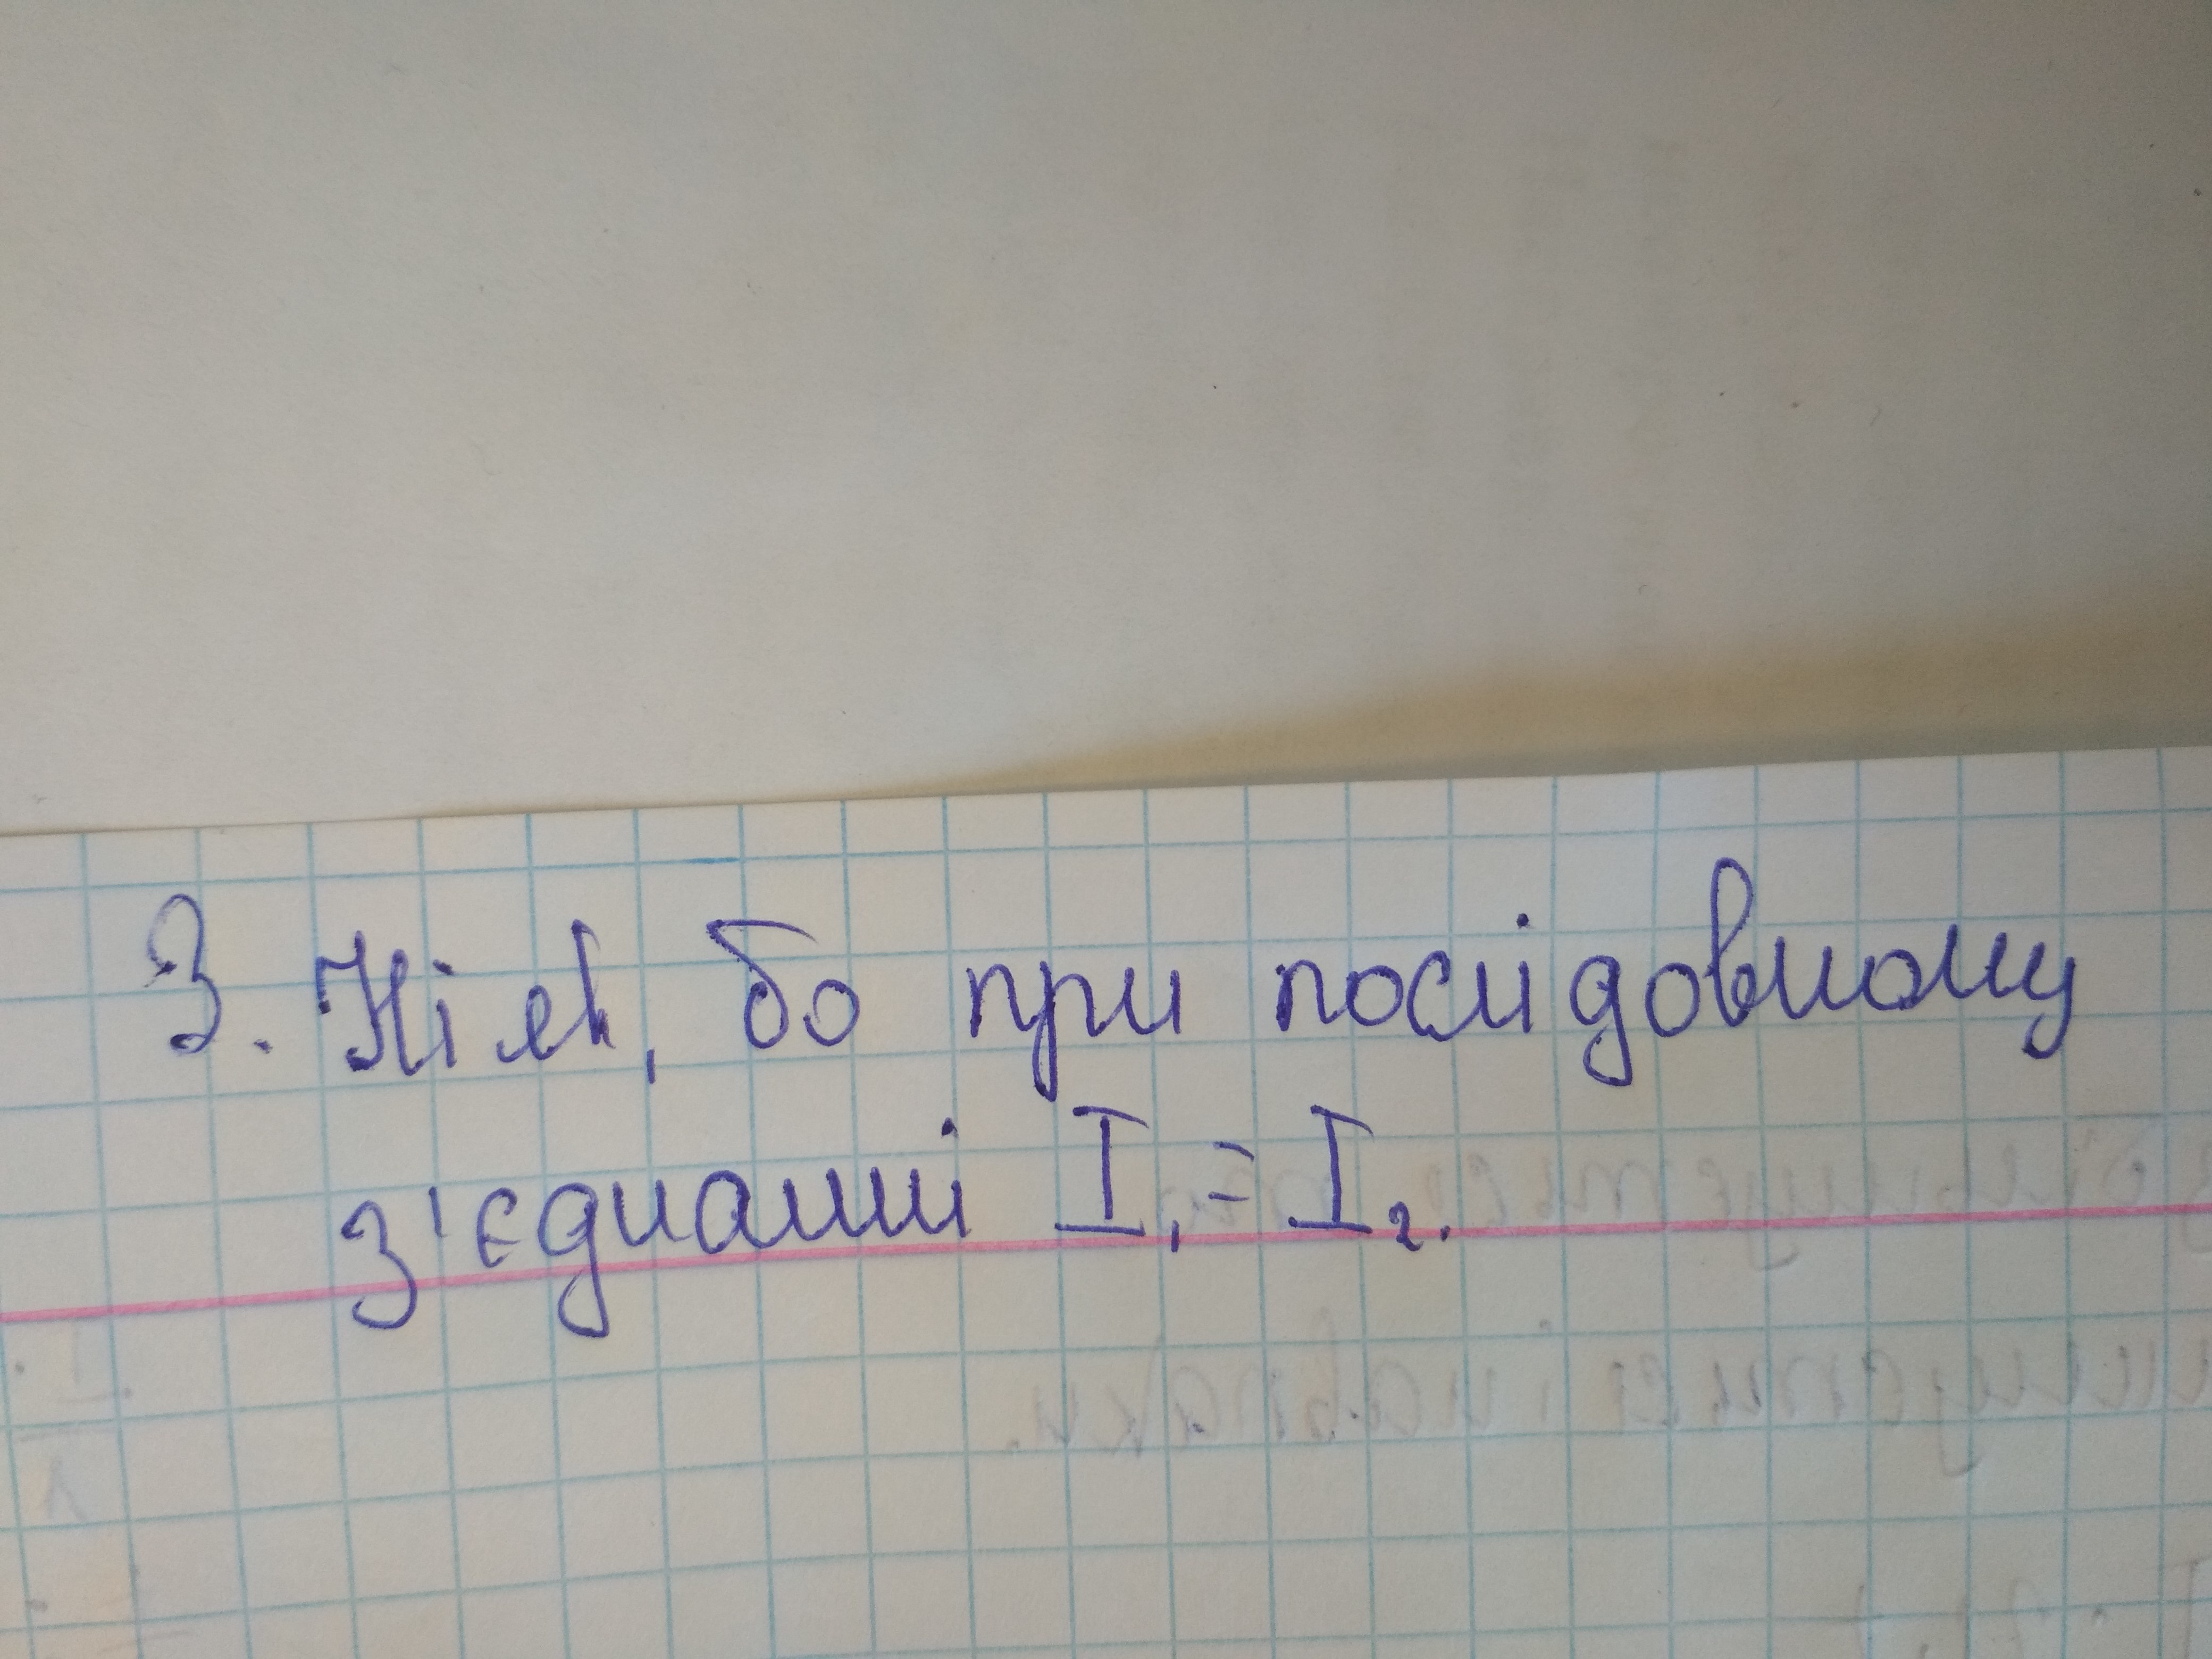 3. Ніяк, бо при послідовному
з'єднанні I₁ = I₂.